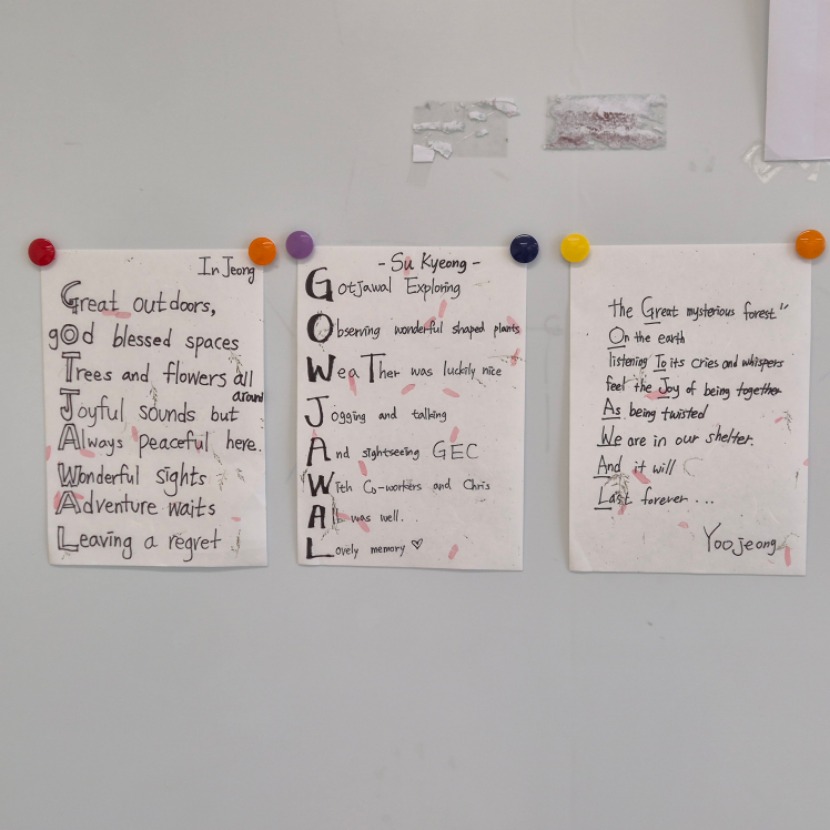 In Jeong
Great outdoors,
gOd blessed spaces
Trees and flowers all
around
Joyful sounds but
Always peaceful here.
Wonderful sights
Adventure waits
Leaving a regret
- Su Kyeong -
Gotjawal Exploring
Observing wonderful shaped plants
WeaTher was luckily nice
Jogging and talking
And sightseeing GEC
With Co-workers and Chris
All was well.
Lovely memory ♡
the Great mysterious forest"
On the earth
listening To its cries and whispers
feel the Joy of being together
As being twisted
We are in our shelter.
And it will
Last forever...
Yoojeong